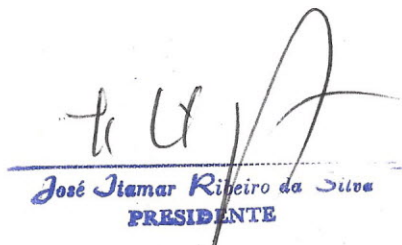 José Itamar Ribeiro da Silva
PRESIDENTE